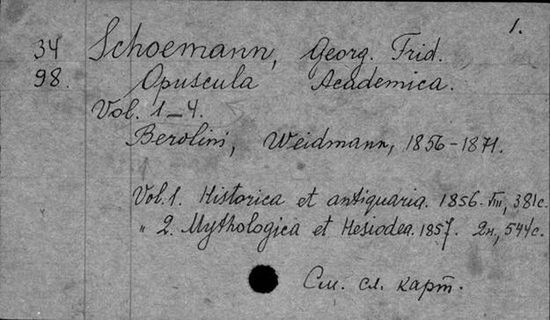 1.
34 Schoemann, Georg. Frid.
98. Opuscula Academica.
Vol. 1-4.
Berolini, Weidmann, 1856-1871.
Vol. 1. Historica et antiquaria. 1856. VIII, 381 с.
" 2. Mythologica et Hesiodea. 1857. 2н, 544 с.
См. сл. карт.